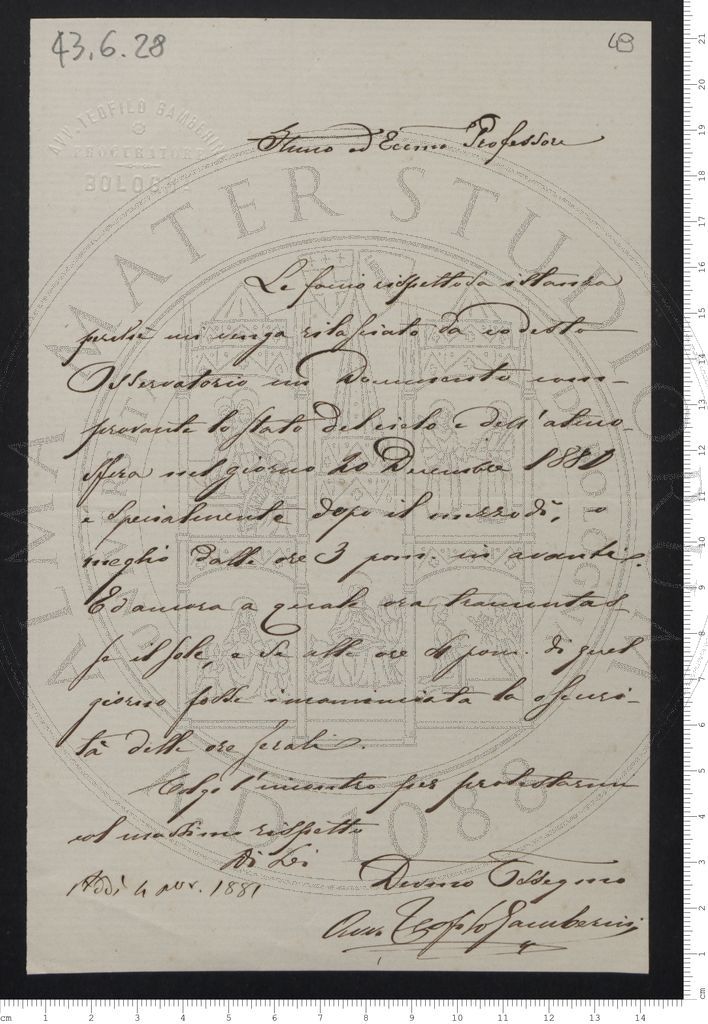 43.6.28
49
AVV. TEOFILO GAMBERINI
PROCURATORE
BOLOGNA
Illmo ed Eccmo Professore
Le faccio rispettosa istanza
perchè mi venga rilasciato da codesto
Osservatorio un Documento com-
provante lo stato del cielo e dell'atmo-
sfera nel giorno 20 Dicembre
e specialmente dopo il mezzodì, o
meglio dalle ore 3 pom. in avanti.
Ed ancora a quale ora tramontas-
se il sole, e se alle ore 4 pom. di quel
giorno fosse incominciata la oscuri-
tà delle ore serali.
Colgo l'incontro per protestarmi
col massimo rispetto
Di Lei
Addì 4 nov. 1881
Devmo Ossegmo
Avv. Teofilo Gamberini
ALMA MATER STUDIORUM
A.D. 1088